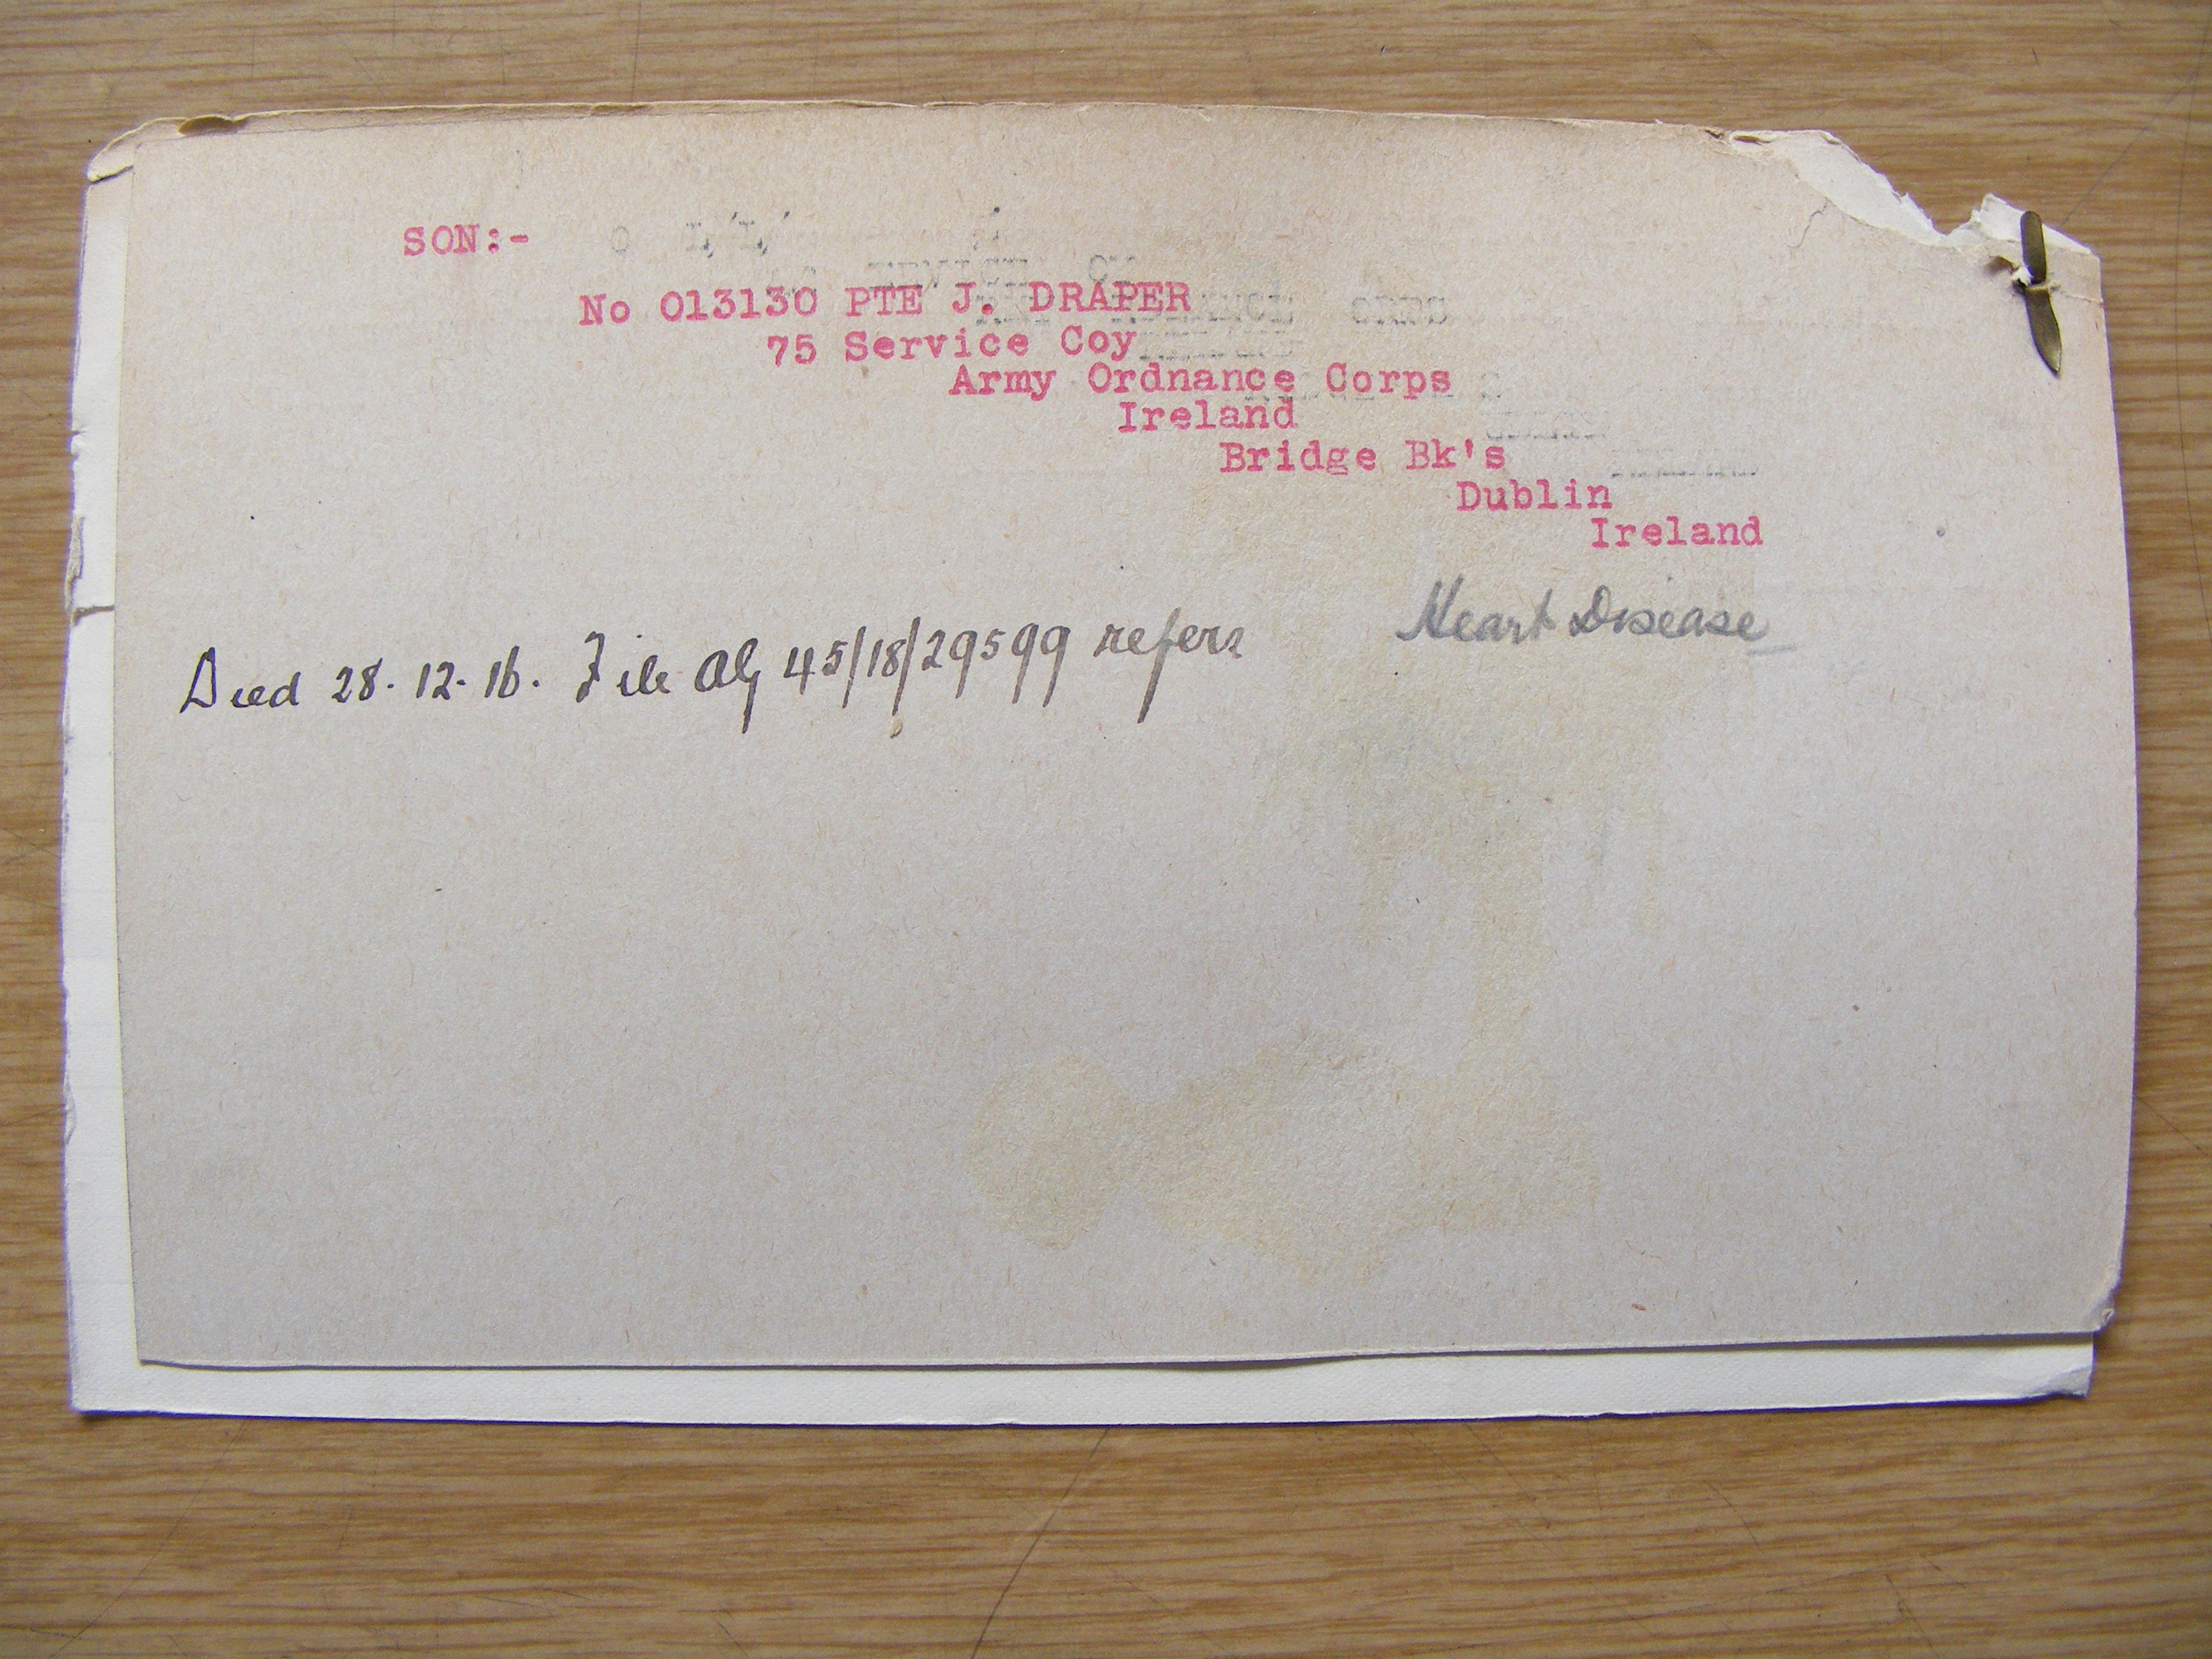 SON:-
No 013130 PTE J. DRAPER
75 Service Coy
Army Ordnance Corps
Ireland
Bridge Bk's
Dublin
Ireland
Heart Disease
Died 28.12.16. File 45/18/29599 refers